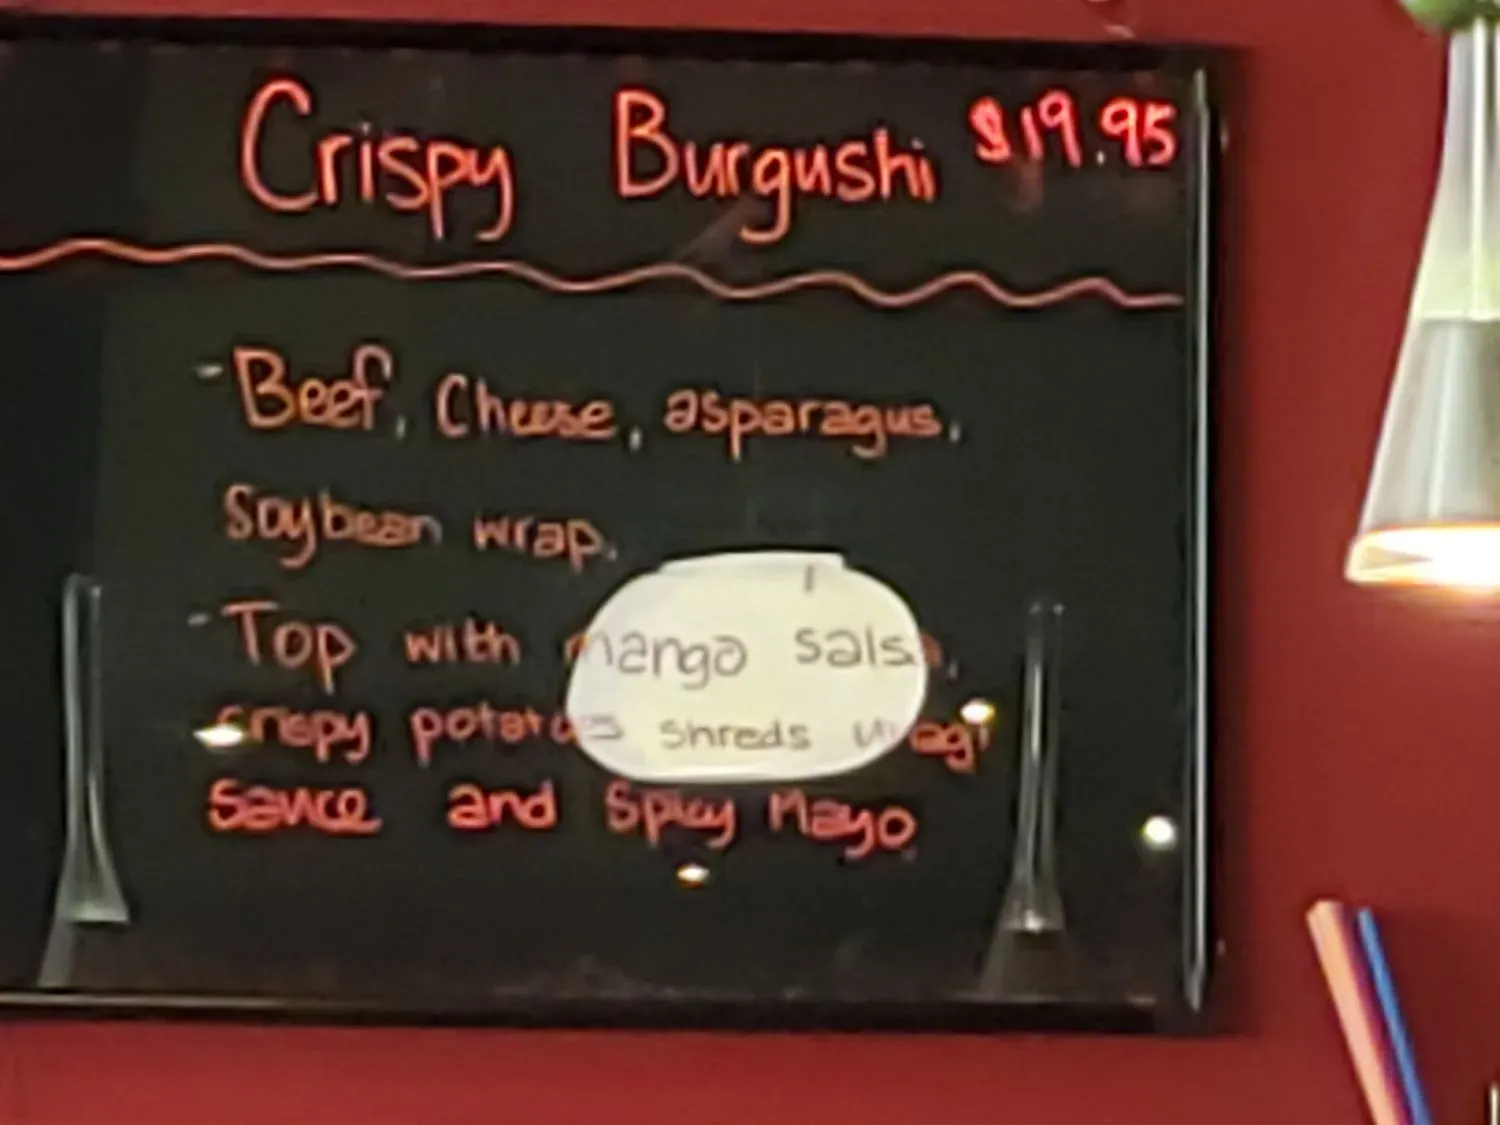 Crispy Burgushi $19.95
- Beef, Cheese, asparagus,
soybean wrap.
- Top with mango salsa,
crispy potatoes shreds unagi
sauce and Spicy Mayo